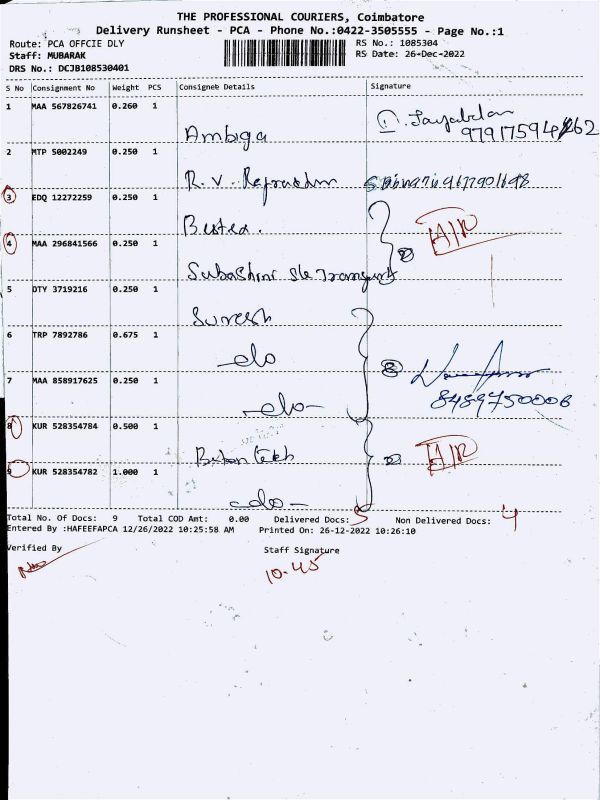 THE PROFESSIONAL COURIERS, Coimbatore
Delivery Runsheet - PCA - Phone No.:0422-3505555 - Page No.:1
Route: PCA OFFCIE DLY RS No.: 1085304
Staff: MUBARAK RS Date: 26-Dec-2022
DRS No.: DCJB108530401
S No Consignment No Weight PCS Consignee Details Signature
1 MAA 567826741 0.260 1
Ambiga
2 MTP 5002249 0.250 1
R. V.
3 EDQ 12272259 0.250 1
4 MAA 296841566 0.250 1
Subashini
5 DTY 3719216 0.250 1
Suresh
6 TRP 7892786 0.675 1
-do
7 MAA 858917625 0.250 1
8489750006
-do-
8 KUR 528354784 0.500 1
9 KUR 528354782 1.000 1
-do-
Total No. Of Docs: 9 Total COD Amt: 0.00 Delivered Docs: 5 Non Delivered Docs: 4
Entered By :HAFEEFAPCA 12/26/2022 10:25:58 AM Printed On: 26-12-2022 10:26:10
Verified By Staff Signature
10-45